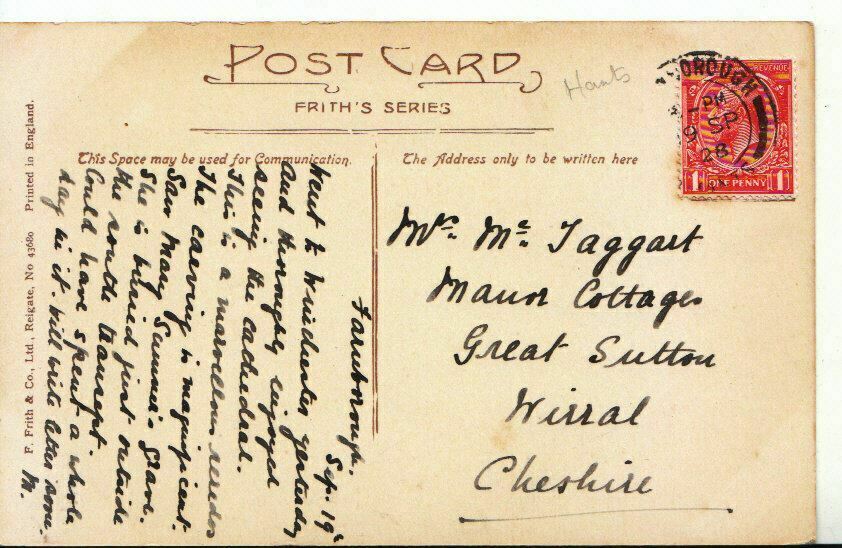 POST CARD
FRITH'S SERIES
Hants
BOROUGH
PM
19 SP
28
REVENUE
1 ONE PENNY 1
This Space may be used for Communication.
The Address only to be written here
Farnborough.
Sep. 19
Went to Winchester yesterday
and thoroughly enjoyed
seeing the cathedral.
This is a marvellous reredos
The carving is magnificent.
Saw Mary Sumner's grave.
She is buried just outside
the south transept.
Could have spent a whole
day in it. Will write later
M.
Mrs. Mc. Taggart
Manor Cottages
Great Sutton
Wirral
Cheshire
F. Frith & Co., Ltd., Reigate, No 43680 Printed in England.